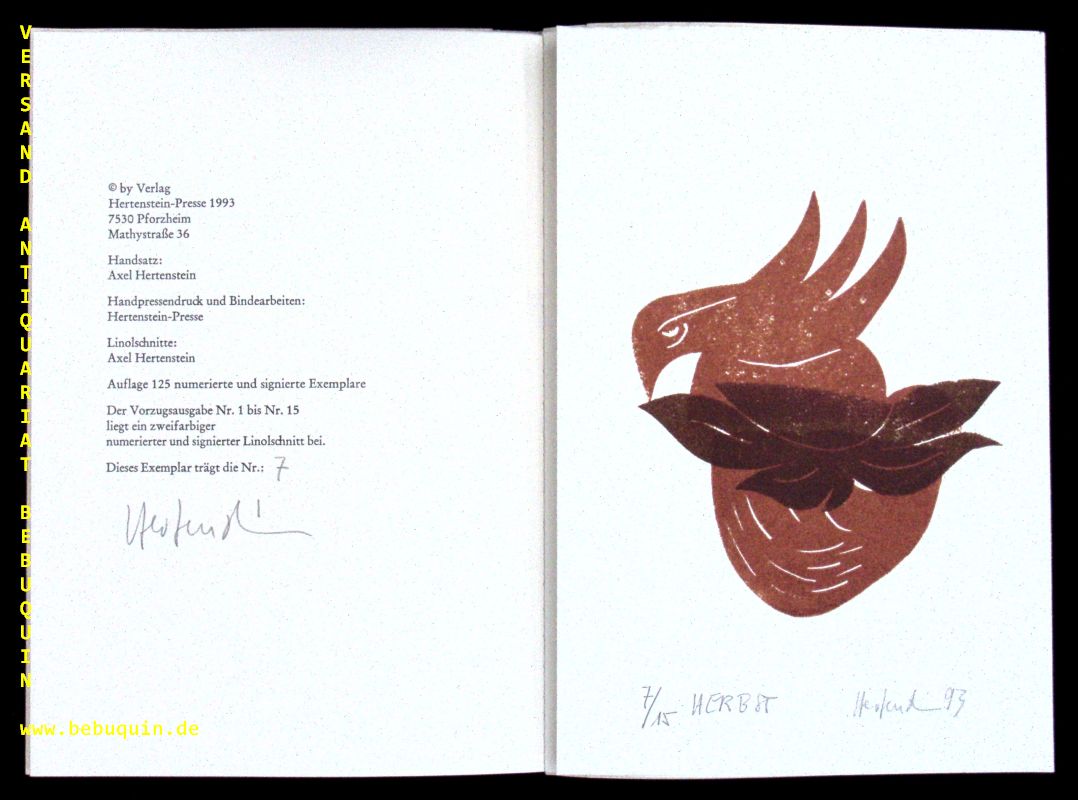 VERSAND ANTIQUARIAT BEBUQUIN
© by Verlag
Hertenstein-Presse 1993
7530 Pforzheim
Mathystraße 36
Handsatz:
Axel Hertenstein
Handpressendruck und Bindearbeiten:
Hertenstein-Presse
Linolschnitte:
Axel Hertenstein
Auflage 125 numerierte und signierte Exemplare
Der Vorzugsausgabe Nr. 1 bis Nr. 15
liegt ein zweifarbiger
numerierter und signierter Linolschnitt bei.
Dieses Exemplar trägt die Nr.: 7
7/15 HERBST 93
www.bebuquin.de